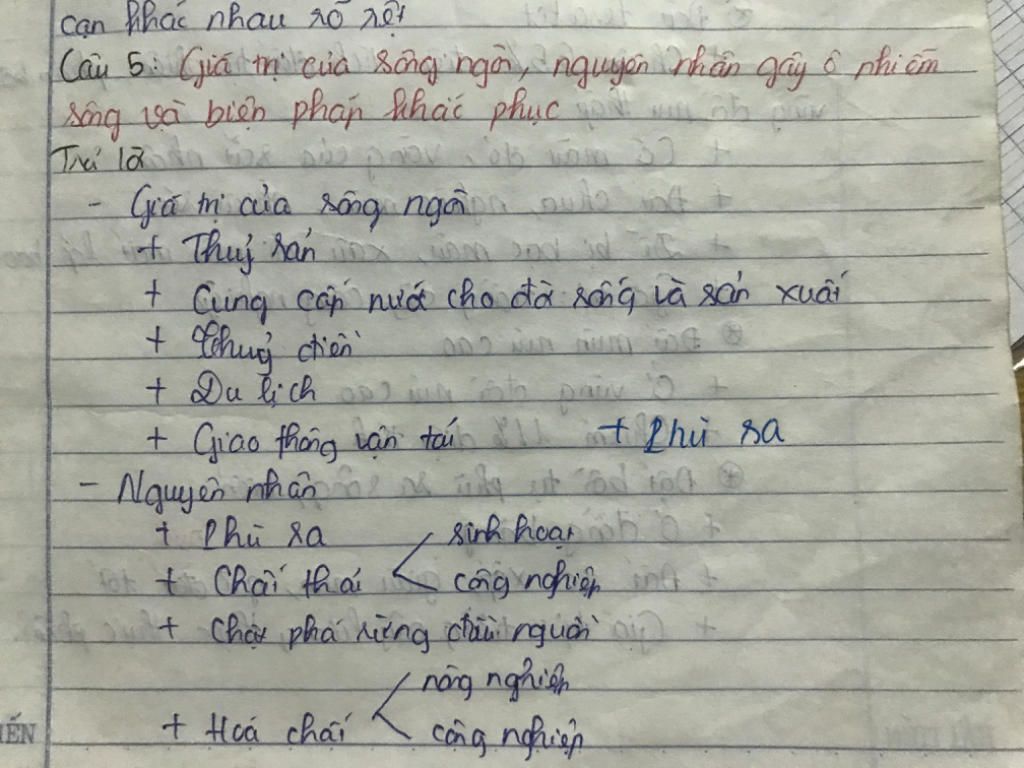 cạn khác nhau rõ rệt
Câu 5: Giá trị của sông ngòi, nguyên nhân gây ô nhiễm
sông và biện pháp khắc phục
Trả lời
- Giá trị của sông ngòi
+ Thuỷ sản
+ Cung cấp nước cho đời sống và sản xuất
+ Thuỷ điện
+ Du lịch
+ Giao thông vận tải + Phù sa
- Nguyên nhân
+ Phù sa
+ Chất thải < sinh hoạt
công nghiệp
+ Chặt phá rừng đầu nguồn
nông nghiệp
+ Hoá chất < công nghiệp
IẾN